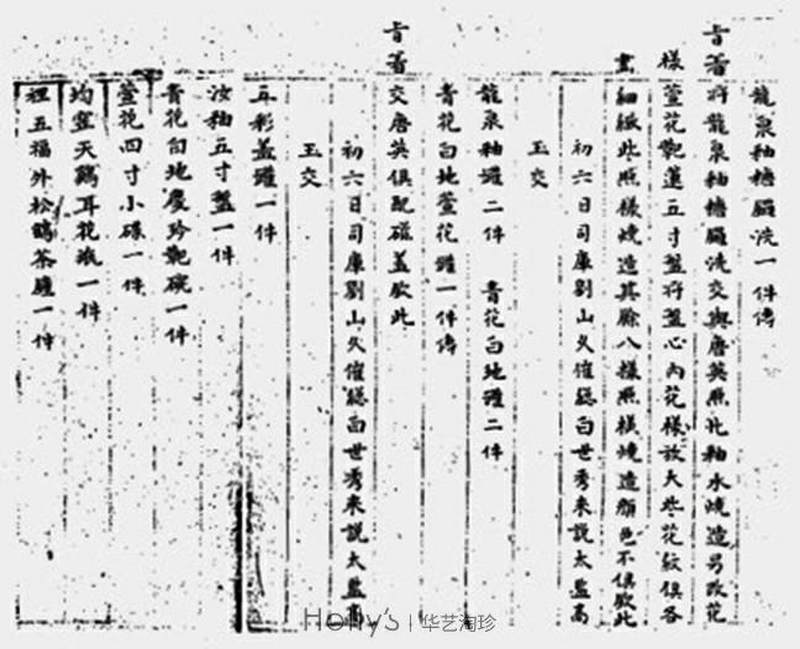 龍泉釉洗一件傳
旨著將龍泉釉洗交與唐英照此釉水燒造另改花
樣萱花靶蓮五寸盤將盤心內花樣放大些花紋俱各
畫細緻些照樣燒造其餘八樣照樣燒造顏色不俱欽此
初六日司庫劉山久催總白世秀來說太監高
玉交
龍泉釉罐二件 青花白地罐二件
青花白地萱花罐一件傳
旨著交唐英俱配磁蓋欽此
初六日司庫劉山久催總白世秀來說太監高
玉交
五彩蓋罐一件
汝釉五寸盤一件
青花白地慶珍靶碗一件
萱花四寸小碟一件
均窑天鷄耳花瓶一件
裡五福外松鶴茶一件
Holly's | 华艺淘珍